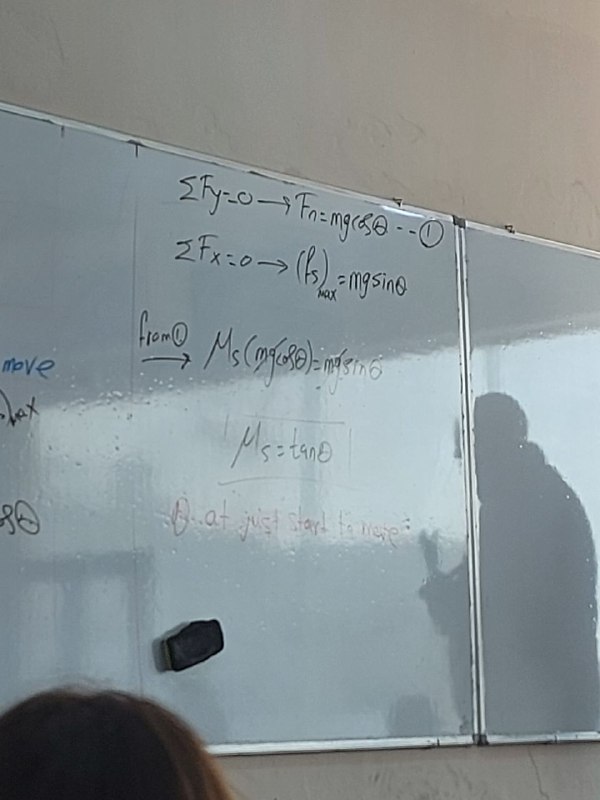 ΣFy=0 → Fn=mgcosθ --- ①
ΣFx=0 → (fs)max=mgsinθ
move
from ① → μs(mgcosθ)=mgsinθ
max
μs=tanθ
θ at just start to move